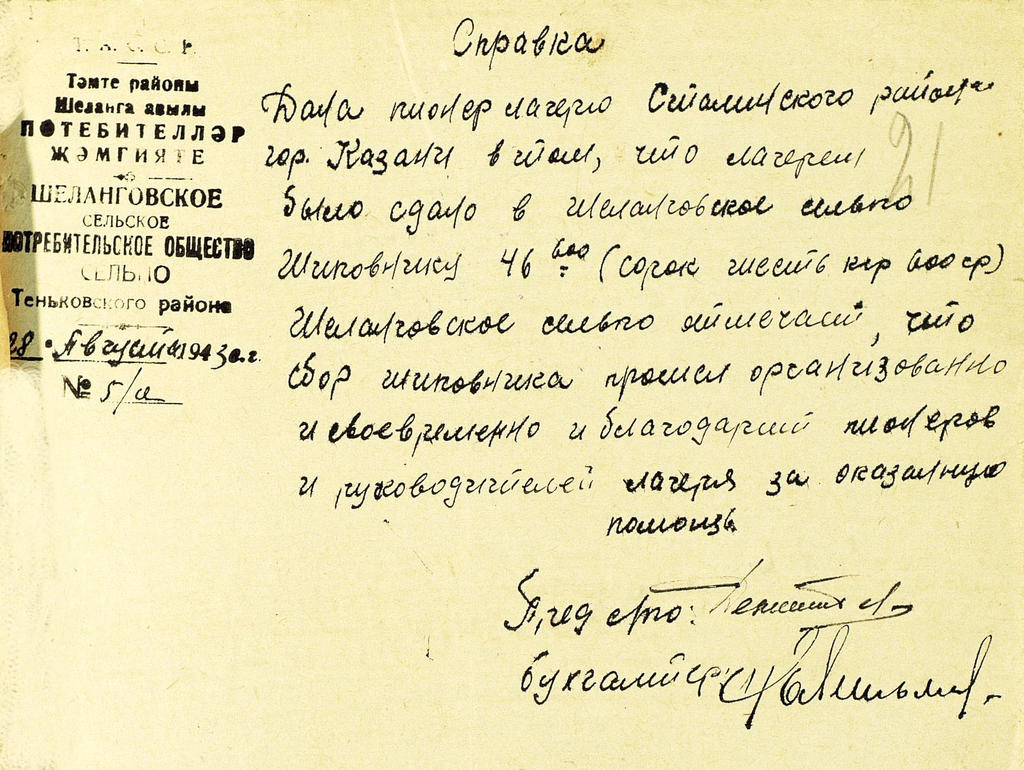 Т. А. С. С. Р.
Тәмте районы
Шеланга авылы
ПОТЕБИТЕЛЛӘР
ҖӘМГИЯТЕ
ШЕЛАНГОВСКОЕ
СЕЛЬСКОЕ
ПОТРЕБИТЕЛЬСКОЕ ОБЩЕСТВО
СЕЛЬПО
Теньковского района
28 Августа 1943 г.
№ 5/а
Справка
Дана пионер лагерю Сталинского района
гор. Казани в том, что лагерем
было сдано в Шеланговское сельпо
Шиповнику 46 600 (сорок шесть кгр 600 гр)
Шеланговское сельпо отмечает, что
сбор шиповника прошел организованно
и своевременно и благодарит пионеров
и руководителей лагеря за оказанную
помощь
21
Пред с/по:
Бухгалтер